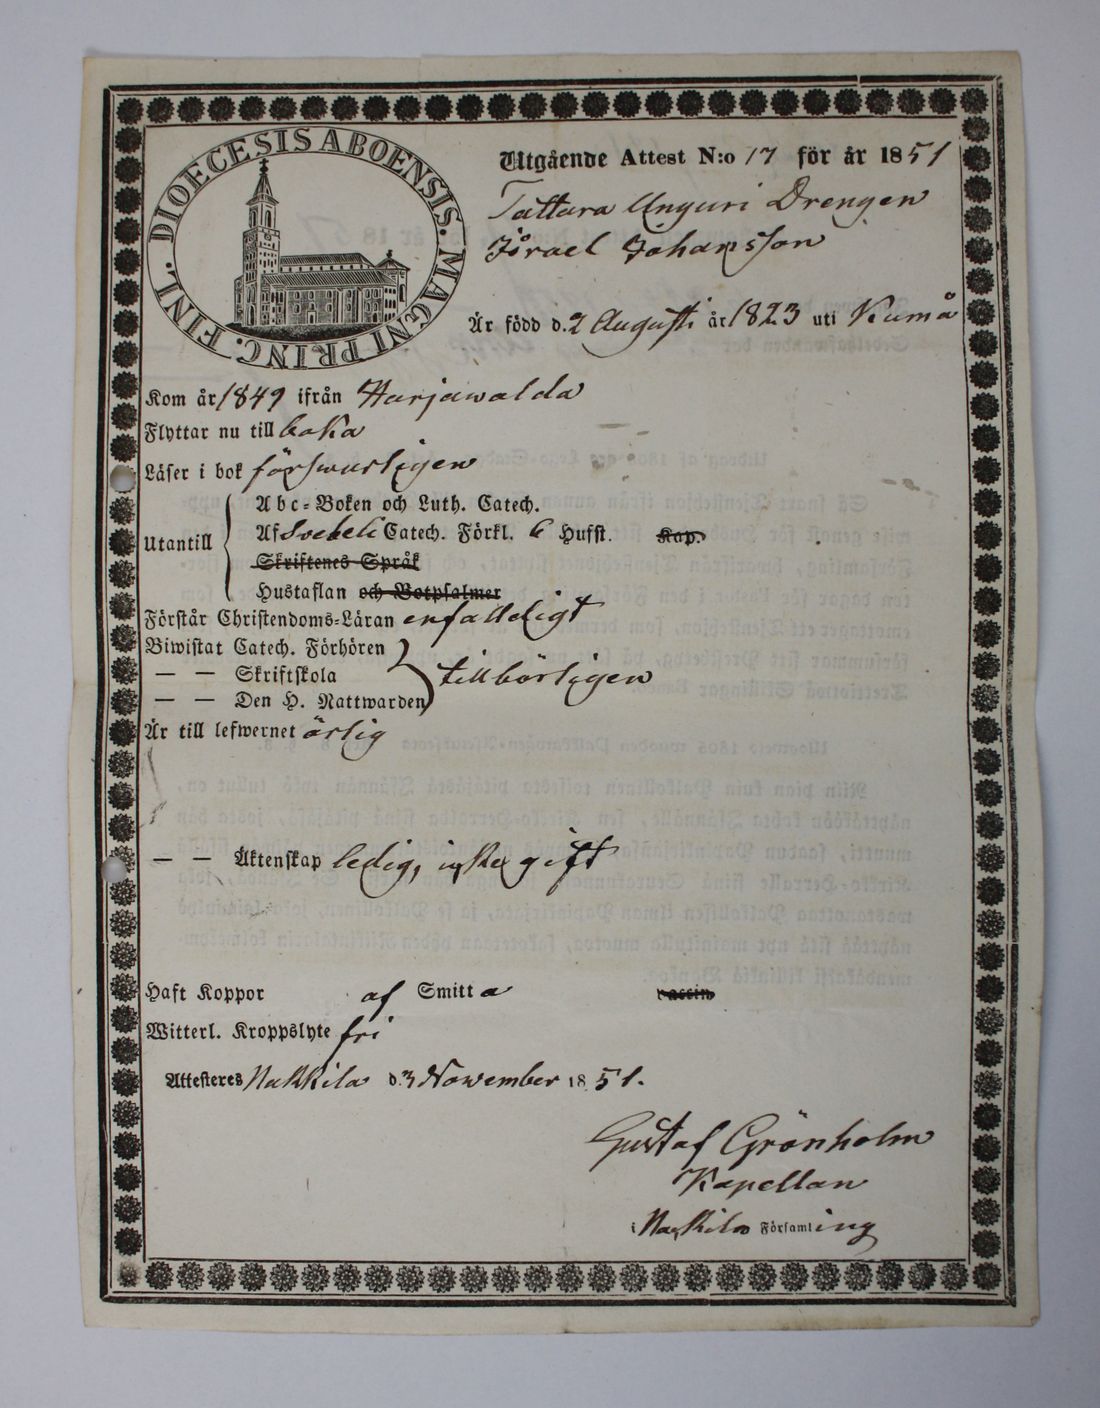 DIOECESIS ABOENSIS. MAGNI PRINC. FINL.
Utgående Attest N:o 17 för år 1851
Tattara Unguri Drengen
Israel Johansson
Är född d. 2 Augusti år 1823 uti Kumå
Kom år 1849 ifrån Harjawalda
Flyttar nu till
Läser i bok försvarligen
Utantill
Abc-Boken och Luth. Catech.
Af Svebeli Catech. Förkl. 6 Hufst. Kap.
Skriftenes Språk
Hustaflan och Botpsalmer
Förstår Christendoms-Läran enfalleligt
Biwistat Catech. Förhören
— — Skriftskola
tillbörligen
— — Den H. Nattwarden
Är till lefwernet ärlig
— — Äktenskap ledig, icke gift
Haft Koppor af Smitta vaccin
Witterl. Kroppslyte fri
Attesteres Nakkila d. 3 November 1851.
Gustaf Grönholm
Kapellan
i Nakkila Församling